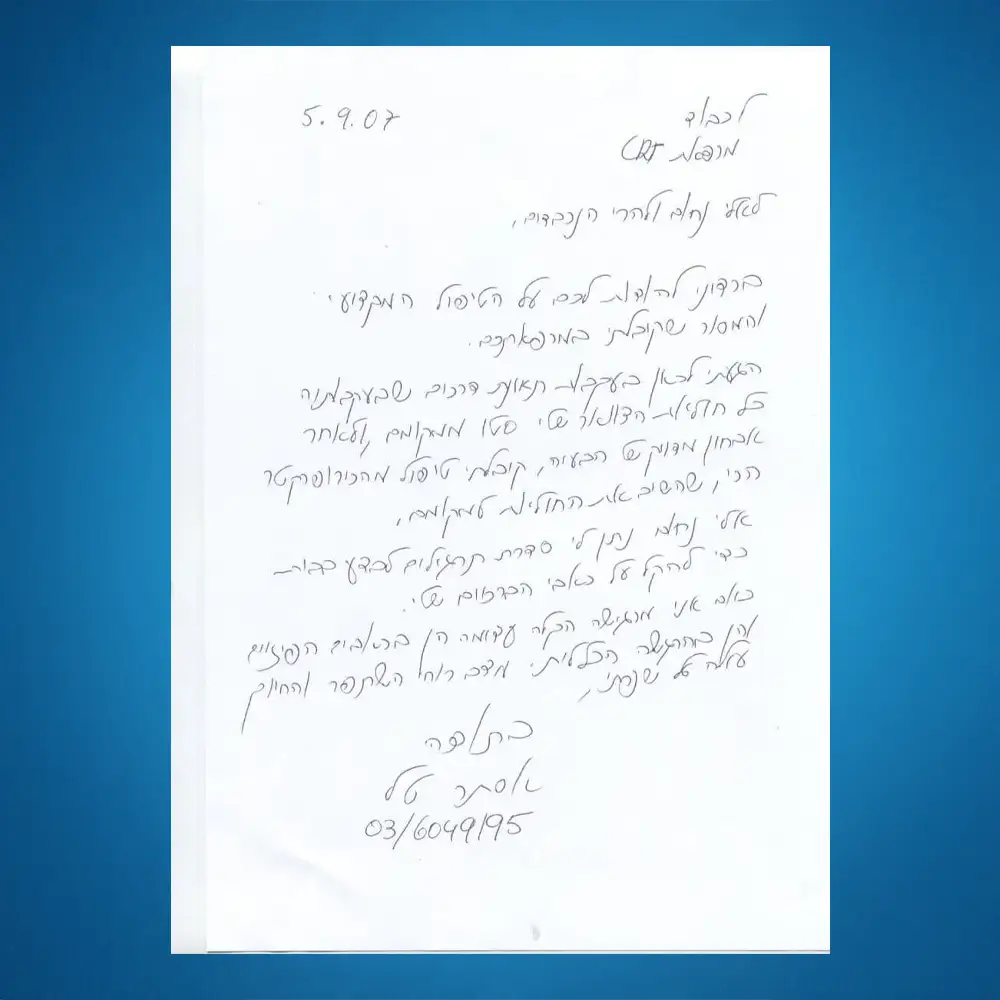 5.9.07
לכבוד
מרפאת CRT
לאלי נחום ולהרי הנכבדים,
ברצוני להודות לכם על הטיפול המקצועי
והמסור שקיבלתי במרפאתכם.
הגעתי לכאן בעקבות תאונת דרכים שבעקבותיה
כל חוליות הצוואר שלי סטו ממקומם, ולאחר
אבחון מדויק של הבעיה, קיבלתי טיפול מהכירופרקטר
הרי, שהשיב את החוליות למקומם,
אלי נחום נתן לי סדרת תרגילים לבצע בבית
כדי להקל על כאבי הברכיים שלי.
כאם אני מרגישה הקלה עצומה הן בכאבים הפיזיים
והן בהרגשה הכללית, מצב רוחי השתפר והחיוך
עלה על שפתי,
בתודה
אסתר טל
03/6049195